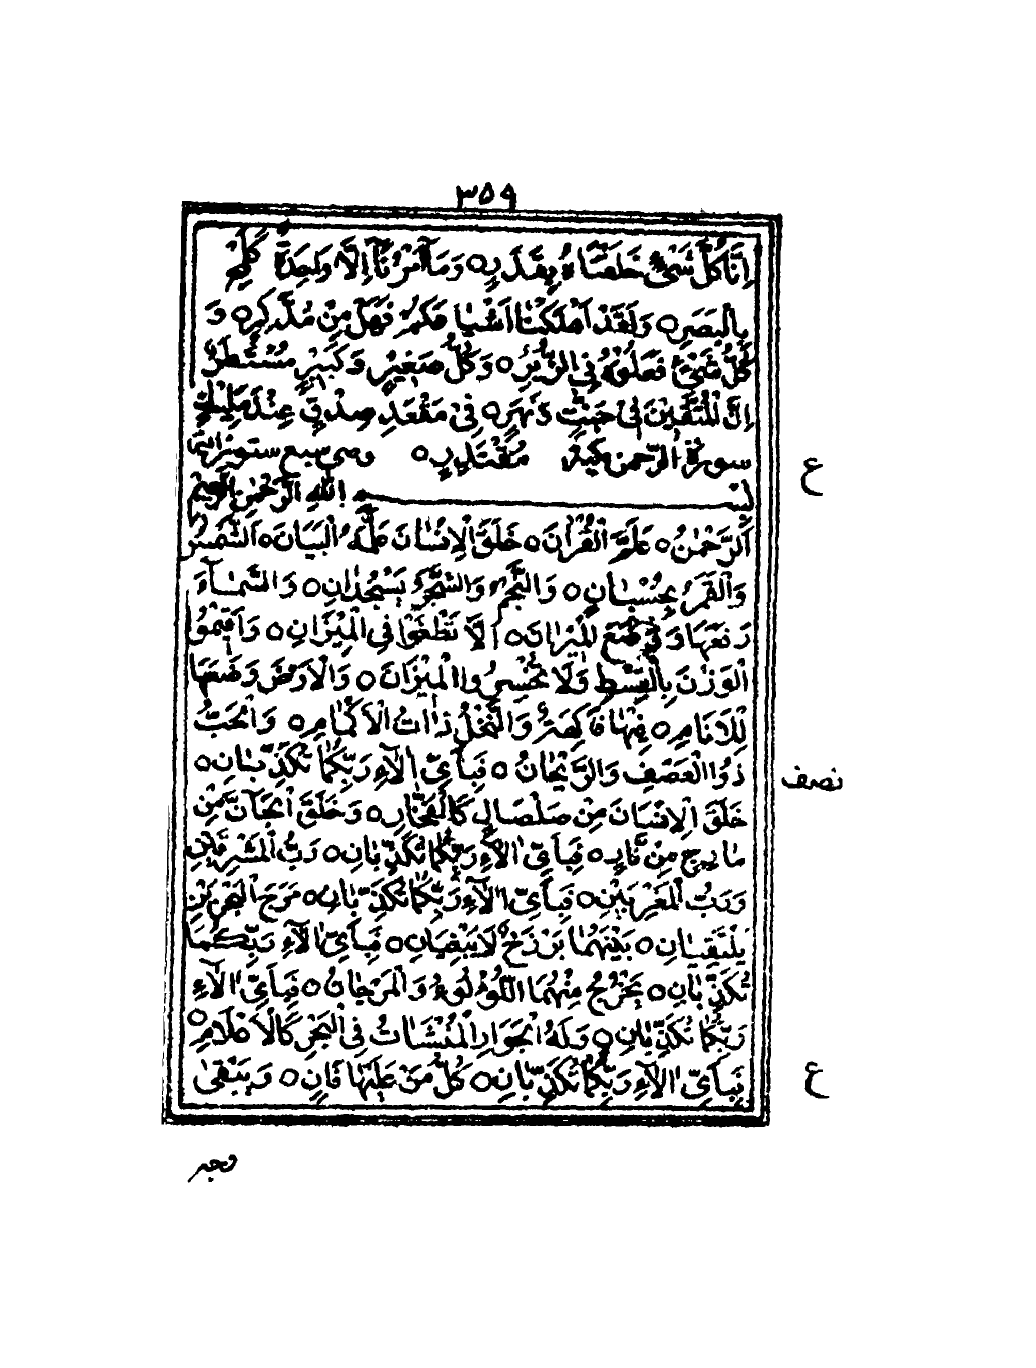 ٣٥٩
اِنَّا كُلَّ شَيْءٍ خَلَقْنَاهُ بِقَدَرٍ ○ وَمَآ اَمْرُنَآ اِلَّا وَاحِدَةٌ كَلَمْحٍ
بِالْبَصَرِ ○ وَلَقَدْ اَهْلَكْنَا اَشْيَاعَكُمْ فَهَلْ مِنْ مُدَّكِرٍ ○ وَ
كُلُّ شَيْءٍ فَعَلُوْهُ فِي الزُّبُرِ ○ وَكُلُّ صَغِيْرٍ وَكَبِيْرٍ مُسْتَطَرٌ
اِنَّ الْمُتَّقِيْنَ فِيْ جَنّٰتٍ وَنَهَرٍ ○ فِيْ مَقْعَدِ صِدْقٍ عِنْدَ مَلِيْكٍ
سورة الرحمن مكية مُقْتَدِرٍ ○ وهي سبع
بسم اللهِ الرَّحْمٰنِ الرَّحِيْمِ
اَلرَّحْمٰنُ ○ عَلَّمَ الْقُرْاٰنَ ○ خَلَقَ الْاِنْسَانَ عَلَّمَهُ الْبَيَانَ ○ اَلشَّمْسُ
وَالْقَمَرُ بِحُسْبَانٍ ○ وَالنَّجْمُ وَالشَّجَرُ يَسْجُدَانِ ○ وَالسَّمَآءَ
رَفَعَهَا وَوَضَعَ الْمِيْزَانَ ○ اَلَّا تَطْغَوْا فِي الْمِيْزَانِ ○ وَاَقِيْمُوا
الْوَزْنَ بِالْقِسْطِ وَلَا تُخْسِرُوا الْمِيْزَانَ ○ وَالْاَرْضَ وَضَعَهَا
لِلْاَنَامِ ○ فِيْهَا فَاكِهَةٌ وَالنَّخْلُ ذَاتُ الْاَكْمَامِ ○ وَالْحَبُّ
ذُو الْعَصْفِ وَالرَّيْحَانُ ○ فَبِاَيِّ اٰلَآءِ رَبِّكُمَا تُكَذِّبَانِ ○
خَلَقَ الْاِنْسَانَ مِنْ صَلْصَالٍ كَالْفَخَّارِ ○ وَخَلَقَ الْجَآنَّ مِنْ
مَارِجٍ مِنْ نَّارٍ ○ فَبِاَيِّ اٰلَآءِ رَبِّكُمَا تُكَذِّبَانِ ○ رَبُّ الْمَشْرِقَيْنِ
وَرَبُّ الْمَغْرِبَيْنِ ○ فَبِاَيِّ اٰلَآءِ رَبِّكُمَا تُكَذِّبَانِ ○ مَرَجَ الْبَحْرَيْنِ
يَلْتَقِيَانِ ○ بَيْنَهُمَا بَرْزَخٌ لَا يَبْغِيَانِ ○ فَبِاَيِّ اٰلَآءِ رَبِّكُمَا
تُكَذِّبَانِ ○ يَخْرُجُ مِنْهُمَا اللُّؤْلُؤُ وَالْمَرْجَانُ ○ فَبِاَيِّ اٰلَآءِ
رَبِّكُمَا تُكَذِّبَانِ ○ وَلَهُ الْجَوَارِ الْمُنْشَاٰتُ فِي الْبَحْرِ كَالْاَعْلَامِ ○
فَبِاَيِّ اٰلَآءِ رَبِّكُمَا تُكَذِّبَانِ ○ كُلُّ مَنْ عَلَيْهَا فَانٍ ○ وَيَبْقٰى
ع
نصف
ع